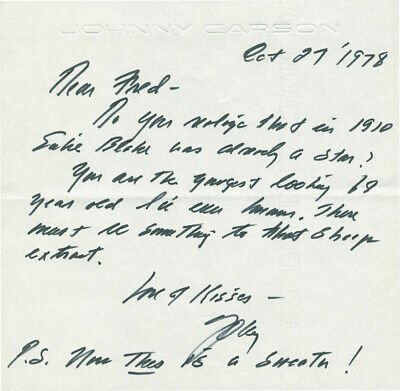 JOHNNY CARSON
Oct 27 '1978
Dear Fred -
Do you realize that in 1910
Eubie Blake was already a star?
You are the youngest looking 68
year old I've ever known. There
must be something to that sheep
extract.
Love & Kisses -
P.S. Now this is a sweater!